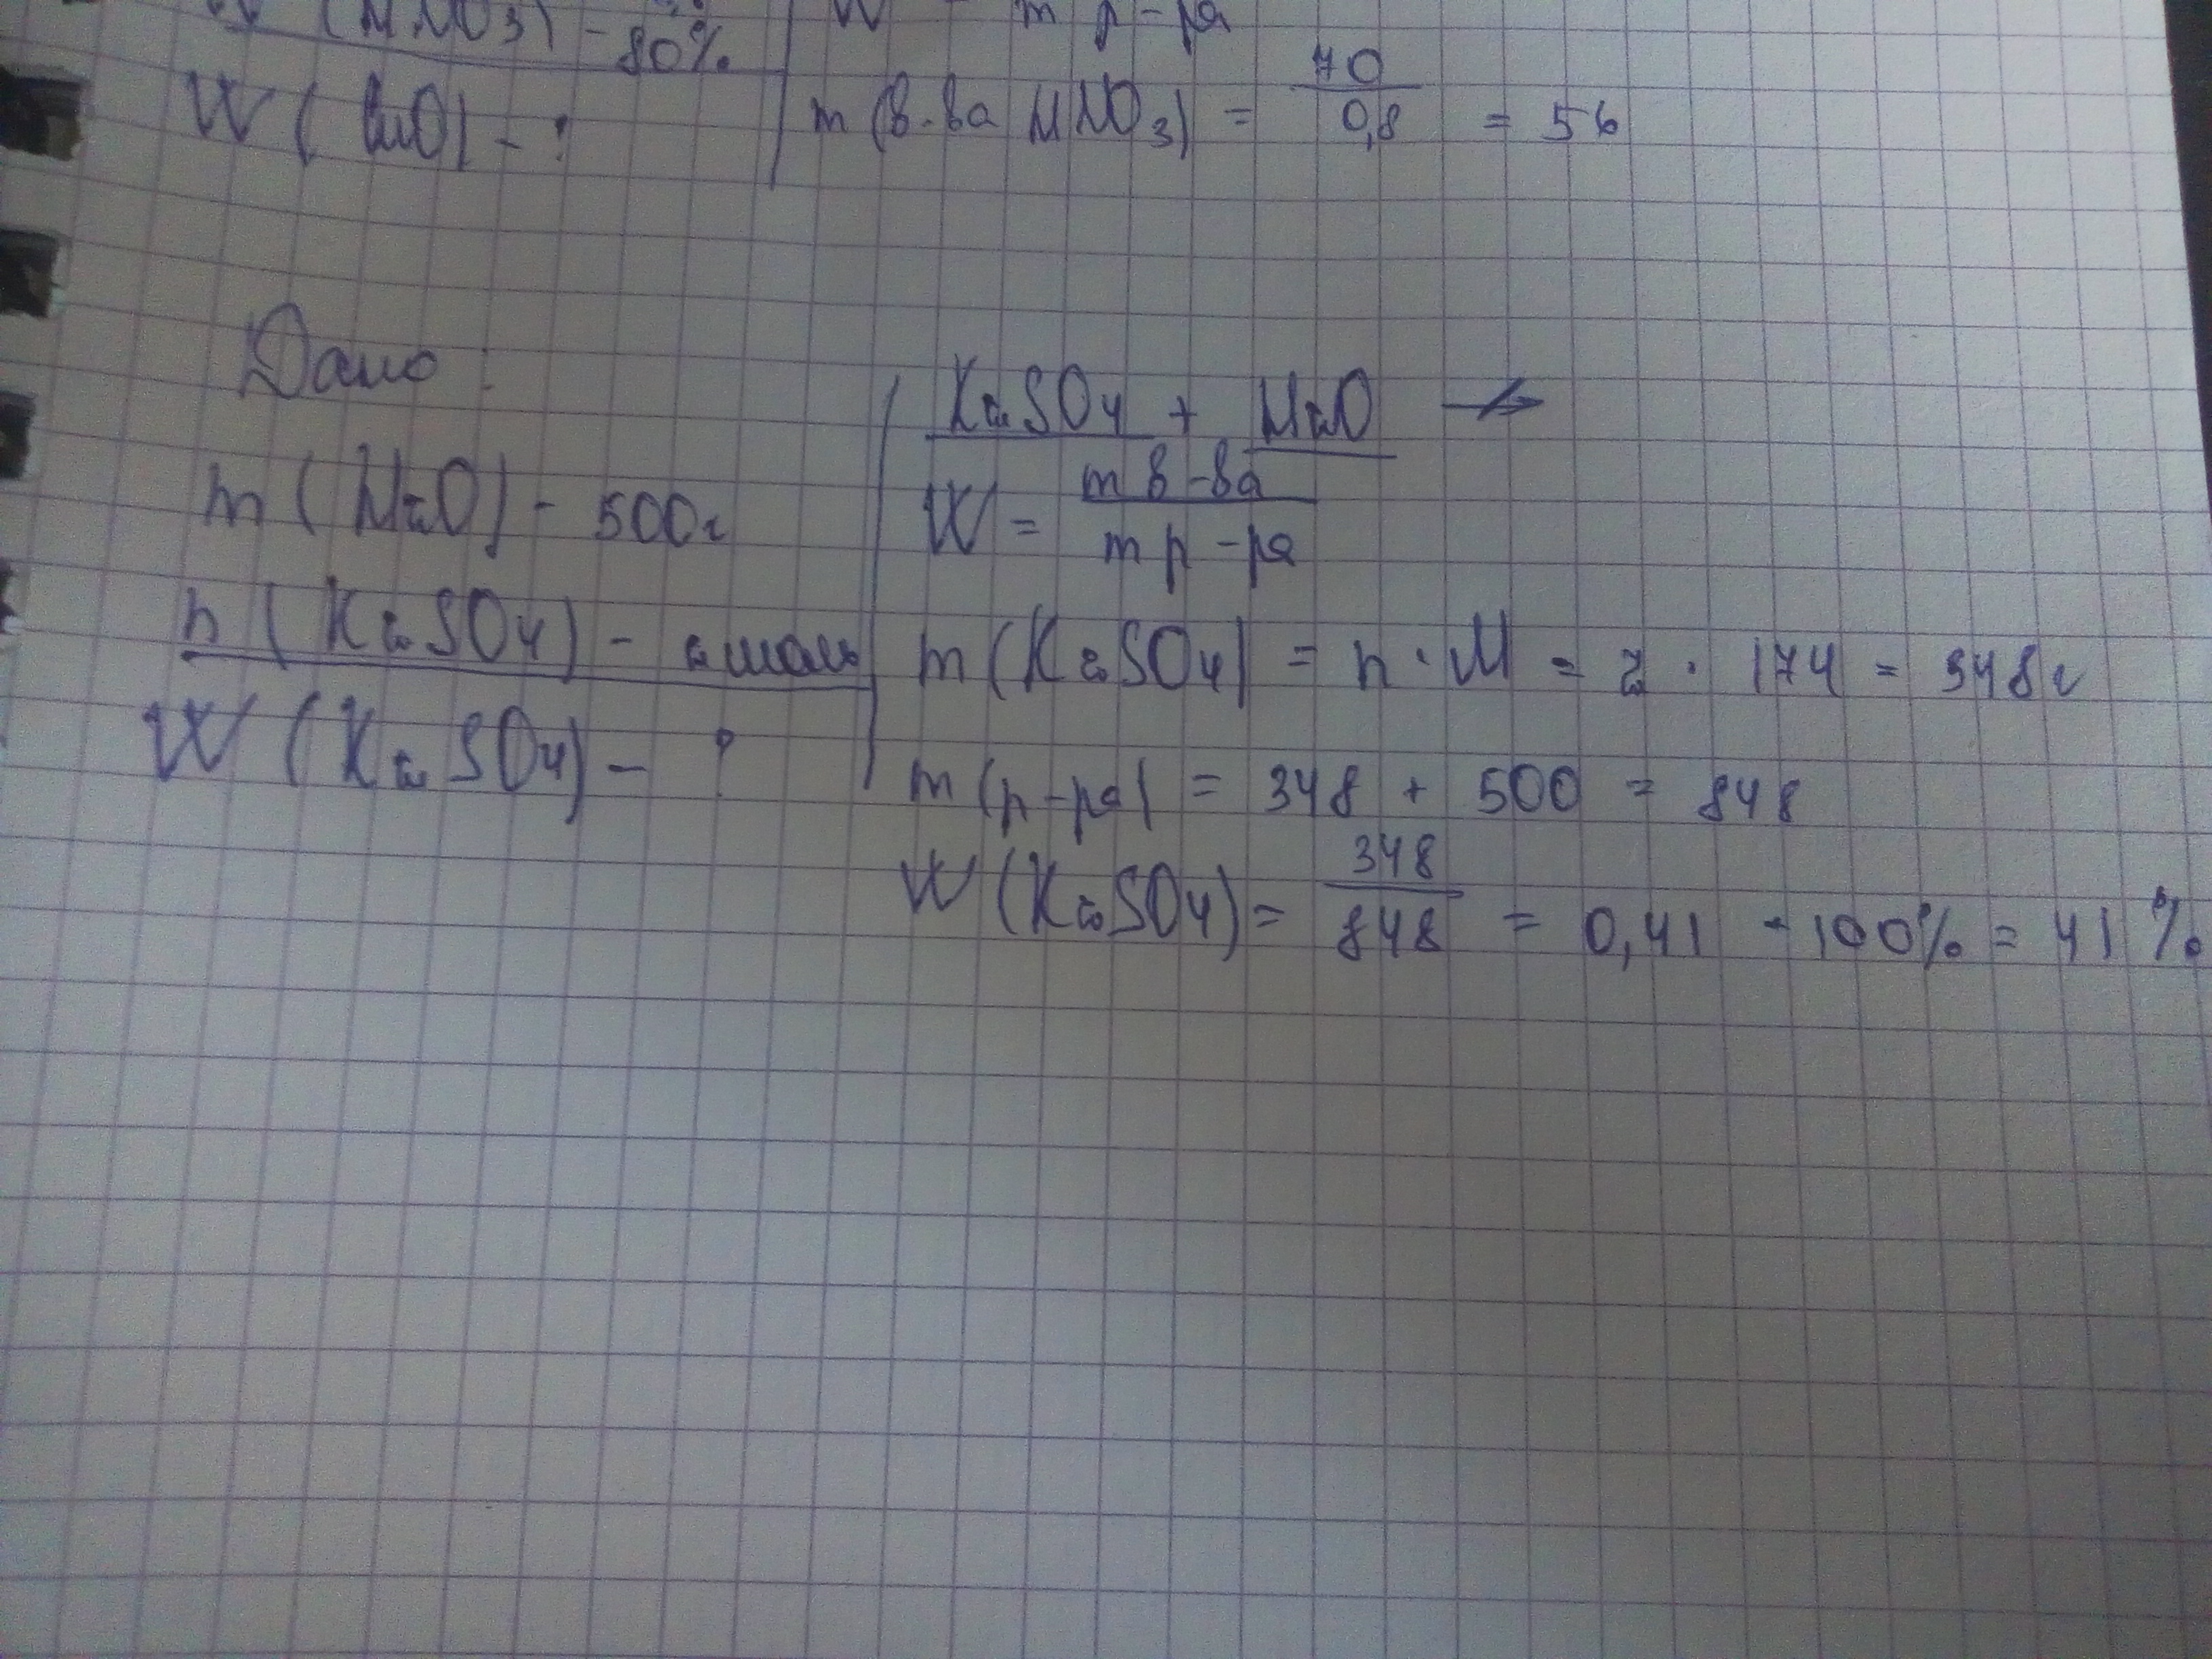 (HNO3) - 80%
W = m р-ра
W (CuO) - ?
m (в-ва HNO3) = 70 / 0,8 = 56
Дано:
m (H2O) - 500г
n (K2SO4) - 2 моль
W (K2SO4) - ?
K2SO4 + H2O ↛
W = m в-ва / m р-ра
m (K2SO4) = n · M = 2 · 174 = 348г
m (р-ра) = 348 + 500 = 848
W (K2SO4) = 348 / 848 = 0,41 · 100% = 41%